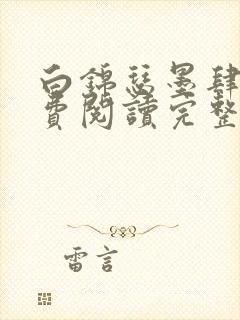 白錦瑟墨肆
費閱讀完整
雷言